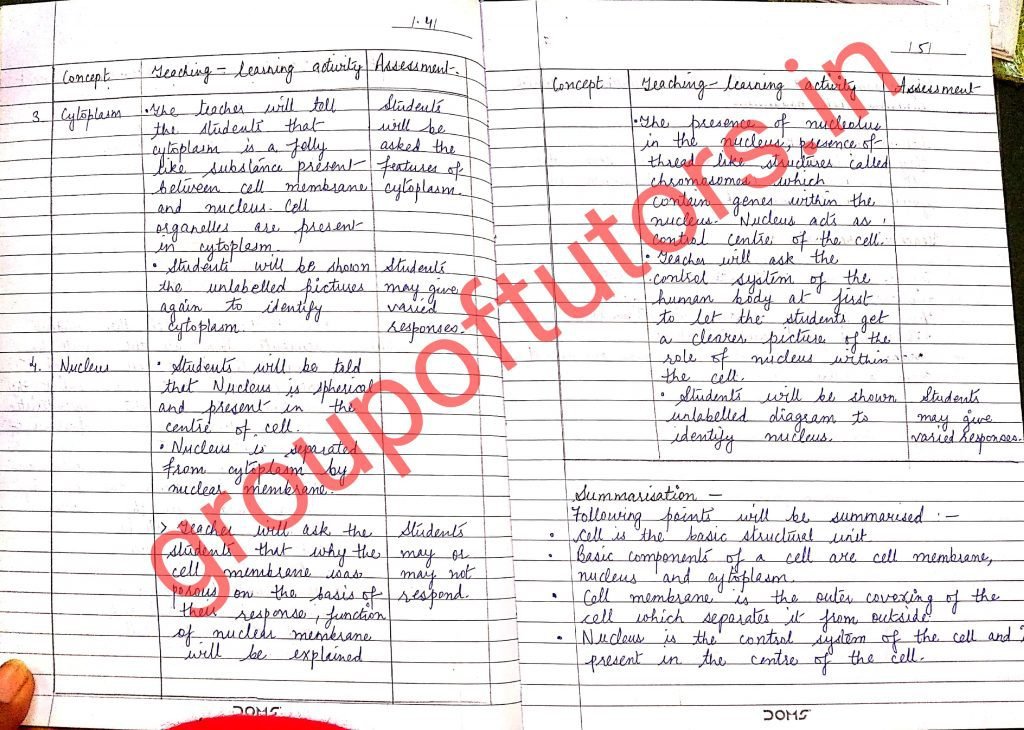 1.41
Concept Teaching - learning activity Assessment.
3 Cytoplasm • The teacher will tell Students
the students that will be
cytoplasm is a jelly asked the
like substance present features of
between cell membrane cytoplasm.
and nucleus. Cell
organelles are present
in cytoplasm.
• Students will be shown Students
the unlabelled pictures may give
again to identify varied
cytoplasm. responses.
4. Nucleus • Students will be told
that Nucleus is spherical
and present in the
centre of cell.
• Nucleus is separated
from cytoplasm by
nuclear membrane.
> Teacher will ask the Students
students that why the may or
cell membrane was may not
porous on the basis of respond.
their response, function
of nuclear membrane
will be explained
DOMS
151
Concept Teaching - learning activity Assessment
• The presence of nucleolus
in the nucleus, presence of
thread like structures called
chromosomes which
contain genes within the
nucleus. Nucleus acts as
control centre of the cell.
• Teacher will ask the
control system of the
human body at first
to let the students get
a clearer picture of the
role of nucleus within
the cell.
• Students will be shown Students
unlabelled diagram to may give
identify nucleus. varied responses.
Summarisation -
Following points will be summarised :-
• Cell is the basic structural unit
• Basic components of a cell are cell membrane,
nucleus and cytoplasm.
• Cell membrane is the outer covering of the
cell which separates it from outside
• Nucleus is the control system of the cell and
present in the centre of the cell.
DOMS
groupoftutors.in